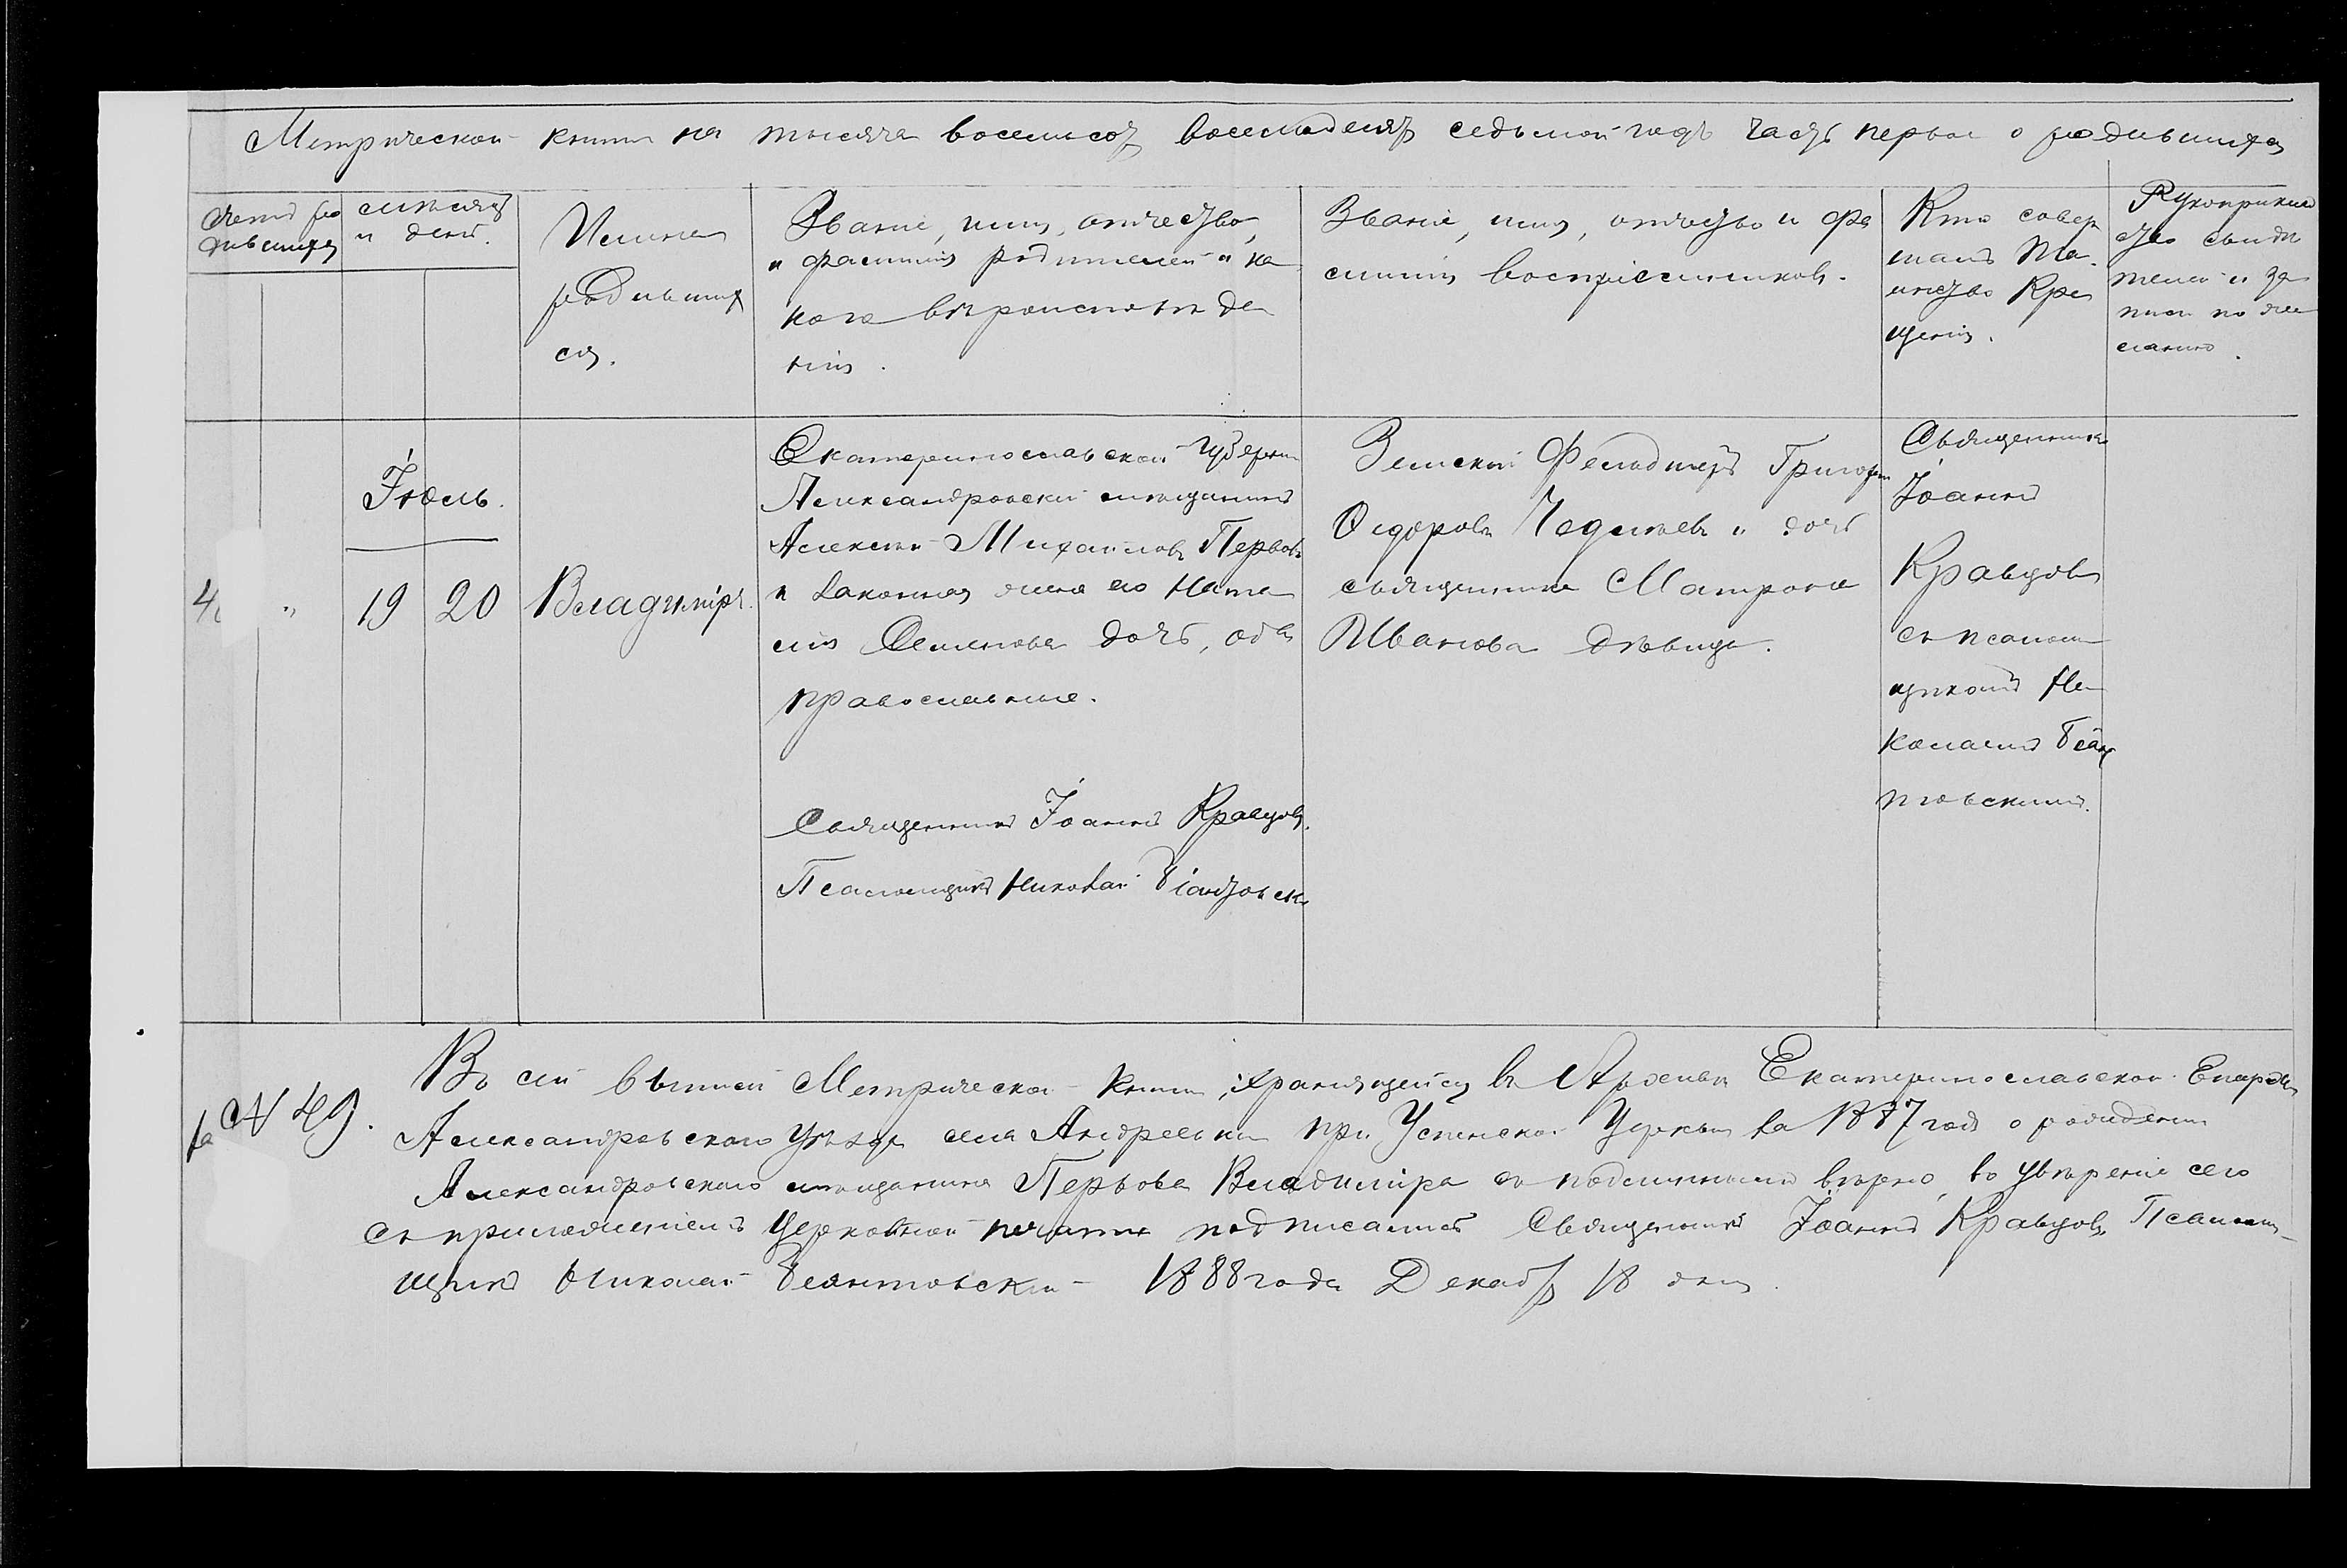 Метрической книги на тысяча восемьсот восемьдесят седьмой годъ часть первая о родившихся
Счетъ ро
дившихся
мѣсяцъ
и день.
Имена
родивших
ся.
Званіе, имя, отчество,
и фамилія родителей и ка
кого вѣроисповѣда
нія.
Званіе, имя, отчество и фа
милія воспріемниковъ.
Кто совер
шалъ Та
инство Кре
щенія.
Рукоприклад
ство свидѣ
телей о за
писи по же
ланію.
4
"
Іюль.
19
20
Владиміръ.
Екатеринославской губерніи
Александровскій мѣщанинъ
Алексѣй Михайловъ Первовъ
и законная жена его Ната
лія Семенова дочь, оба
православные.
Священникъ Іоаннъ Кравцовъ.
Псаломщикъ Николай
Земскій Фельдшеръ Григорій
Сидоровъ и дочь
священника Матрона
Иванова дѣвица.
Священникъ
Іоаннъ
Кравцовъ
съ псалом
щикомъ Ни
колаемъ
Въ сей вышней Метрической книги, хранящейся въ Архивѣ Екатеринославской Епархіи
№ 49.
Александровскаго уѣзда села Андреевки при Успенской Церкви за 1887 годъ о рожденіи
Александровскаго мѣщанина Первова Владиміра съ подлиннымъ вѣрно, въ увѣреніе сего
съ приложеніемъ Церковной печати подписались Священникъ Іоаннъ Кравцовъ, Псалом
щикъ Николай 1888 года Декабр 18 дня.